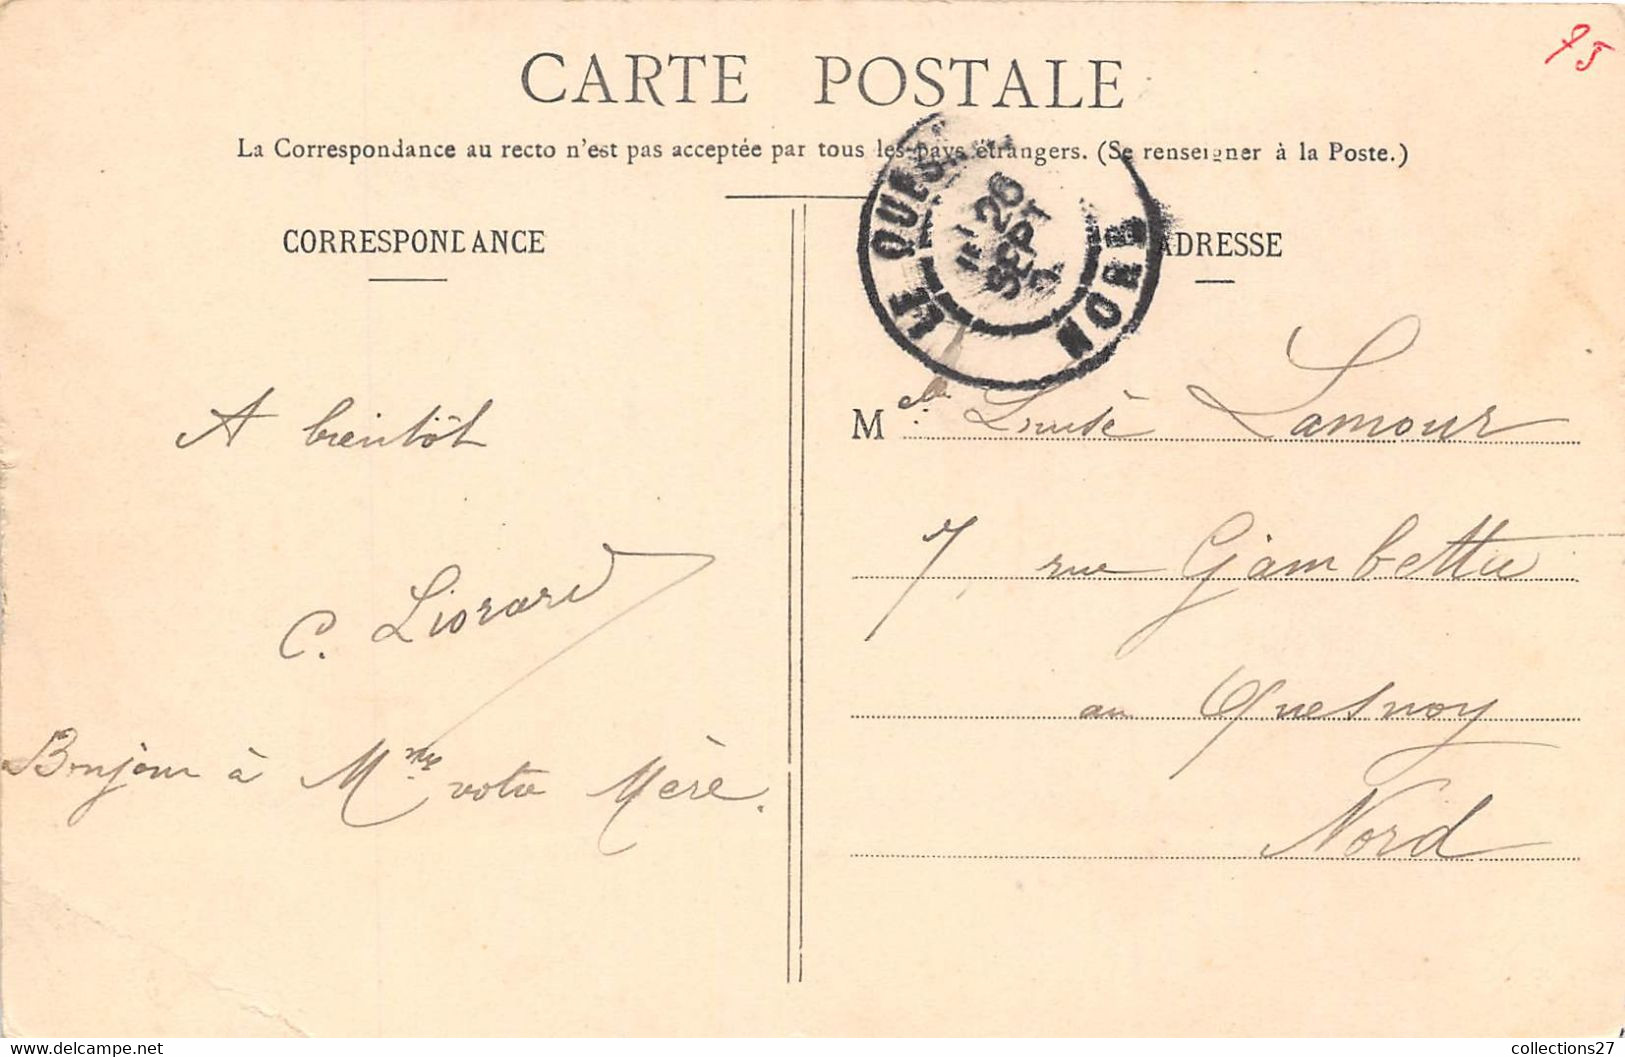 75
CARTE POSTALE
La Correspondance au recto n'est pas acceptée par tous les pays étrangers. (Se renseigner à la Poste.)
CORRESPONDANCE
ADRESSE
LE QUES
26
SEPT
NORD
A bientôt
C. Liorard
Bonjour à Mme votre Mère.
Melle Lamour
7, rue Gambetta
au Quesnoy
Nord
collections27